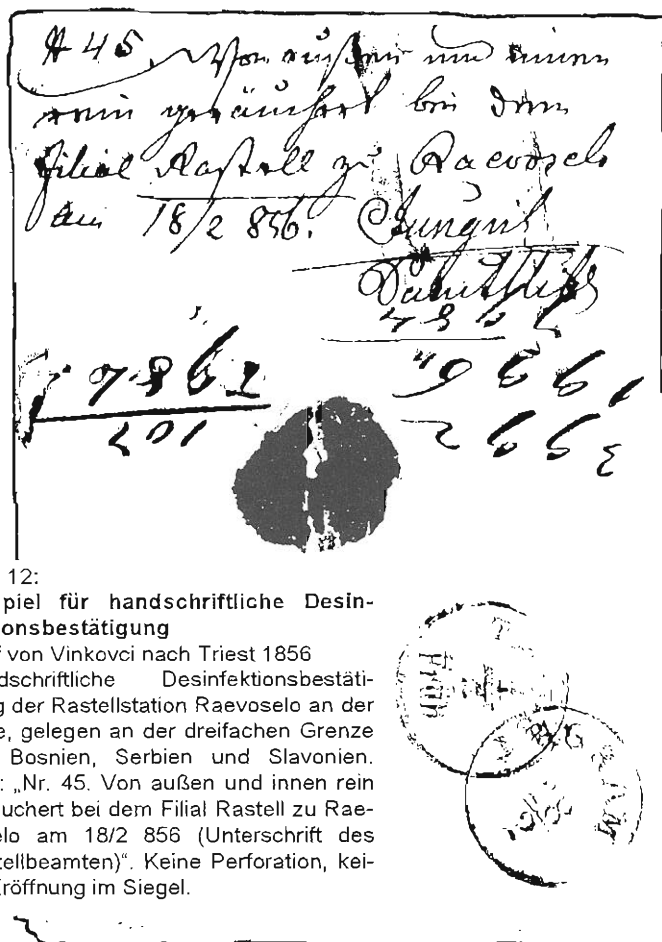 # 45. Von außen und innen
rein geräuchert bei dem
Filial Rastell zu Raevoselo
am 18/2 856.
12:
piel für handschriftliche Desin-
onsbestätigung
von Vinkovci nach Triest 1856
dschriftliche Desinfektionsbestäti-
g der Rastellstation Raevoselo an der
e, gelegen an der dreifachen Grenze
Bosnien, Serbien und Slavonien.
: „Nr. 45. Von außen und innen rein
uchert bei dem Filial Rastell zu Rae-
elo am 18/2 856 (Unterschrift des
tellbeamten)“. Keine Perforation, kei-
röffnung im Siegel.
Früh
AGRAM